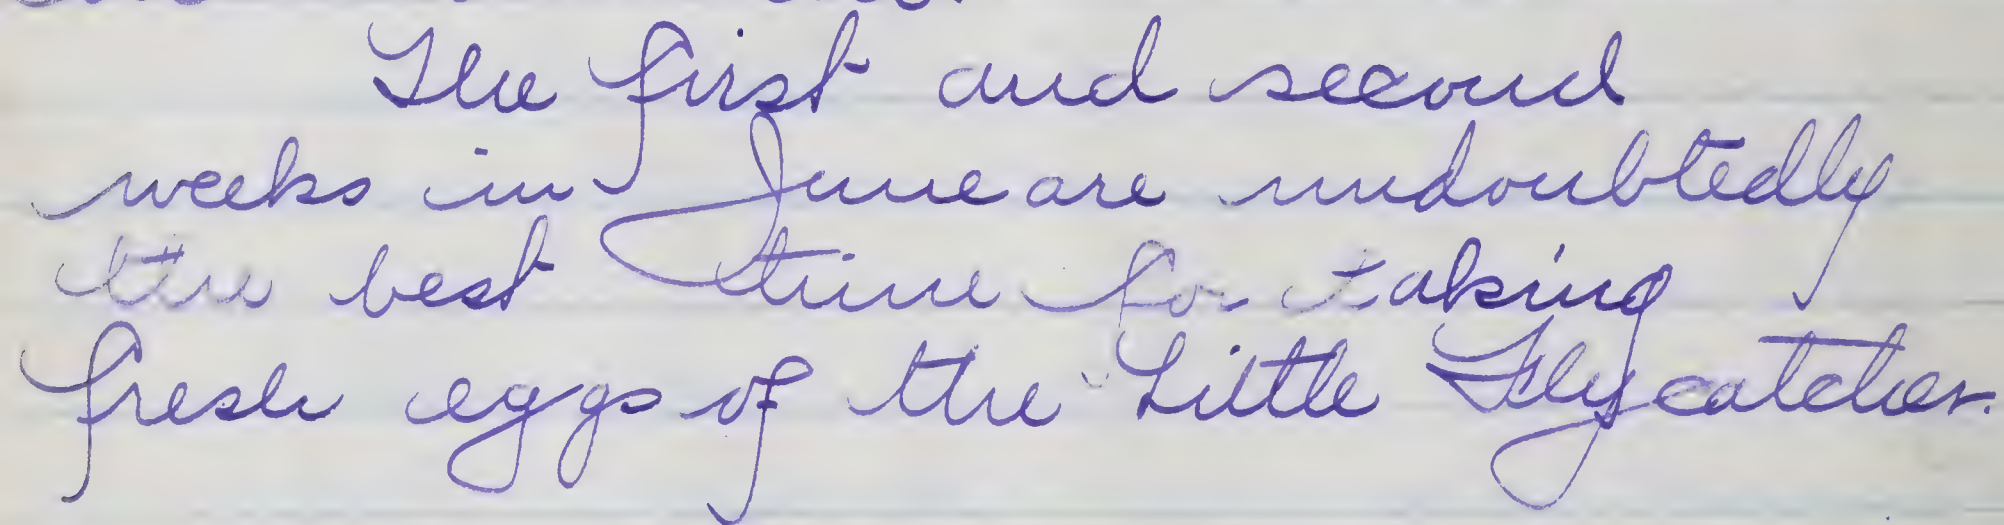 The first and second
weeks in June are undoubtedly
the best time for taking
fresh eggs of the Little Flycatcher.